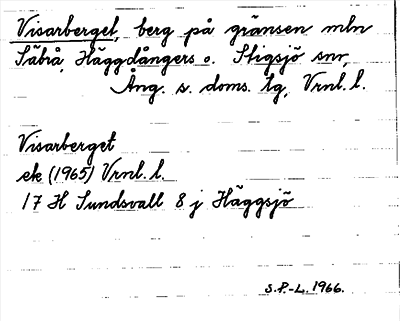 Visarberget, berg på gränsen mln
Säbrå, Häggdångers o. Stigsjö snr,
Ång. s. doms. tg, Vrnl. l.
Visarberget
ek (1965) Vrnl. l.
17 H Sundsvall 8 j Häggsjö
S.P.-L. 1966.